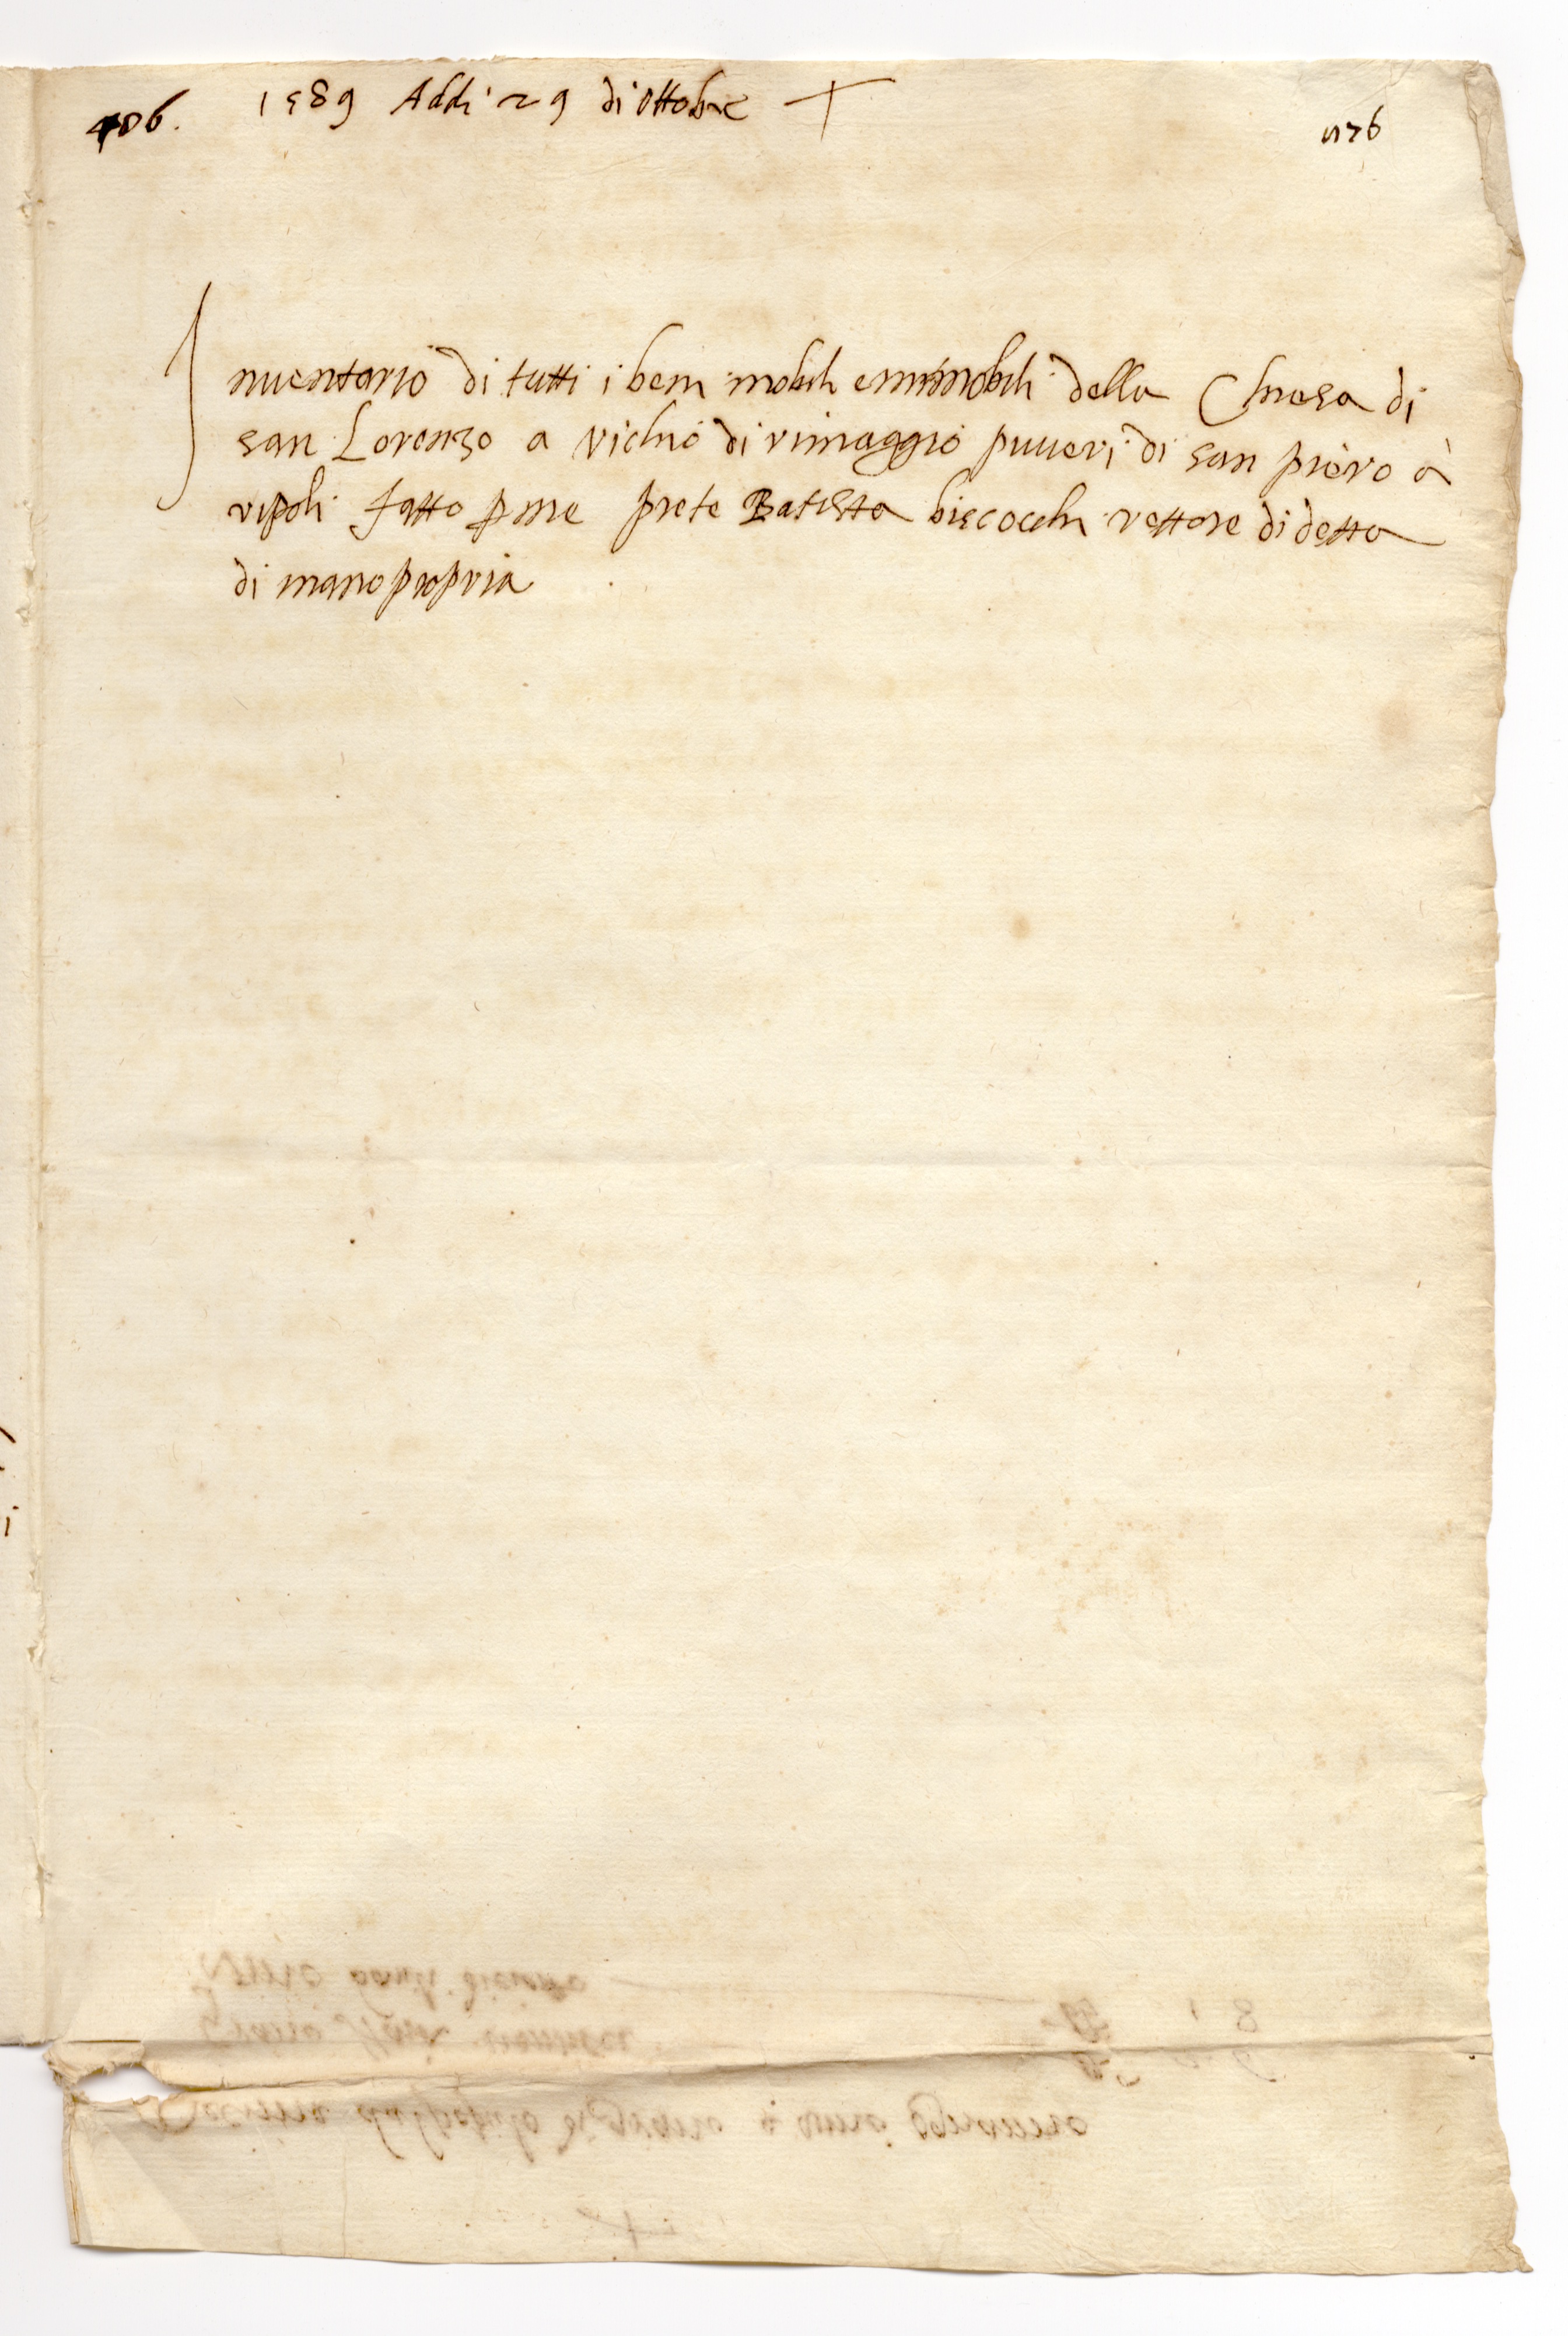 406. 1589 Addi 29 di Ottobre
1176
Inuentario di tutti i beni mobili emmobili della Chiesa di
san Lorenzo a Vichio di rimaggio piuieri di san piero à
ripoli fatto p me prete Batista biscocchi rettore di detta
di mano propria